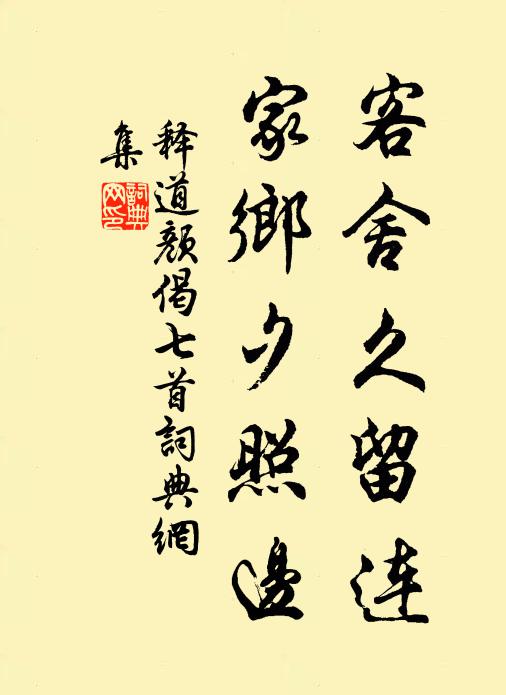 客舍久留连
家鄉夕照邊
释道颜偈七首詞典網
集
詞典
网印